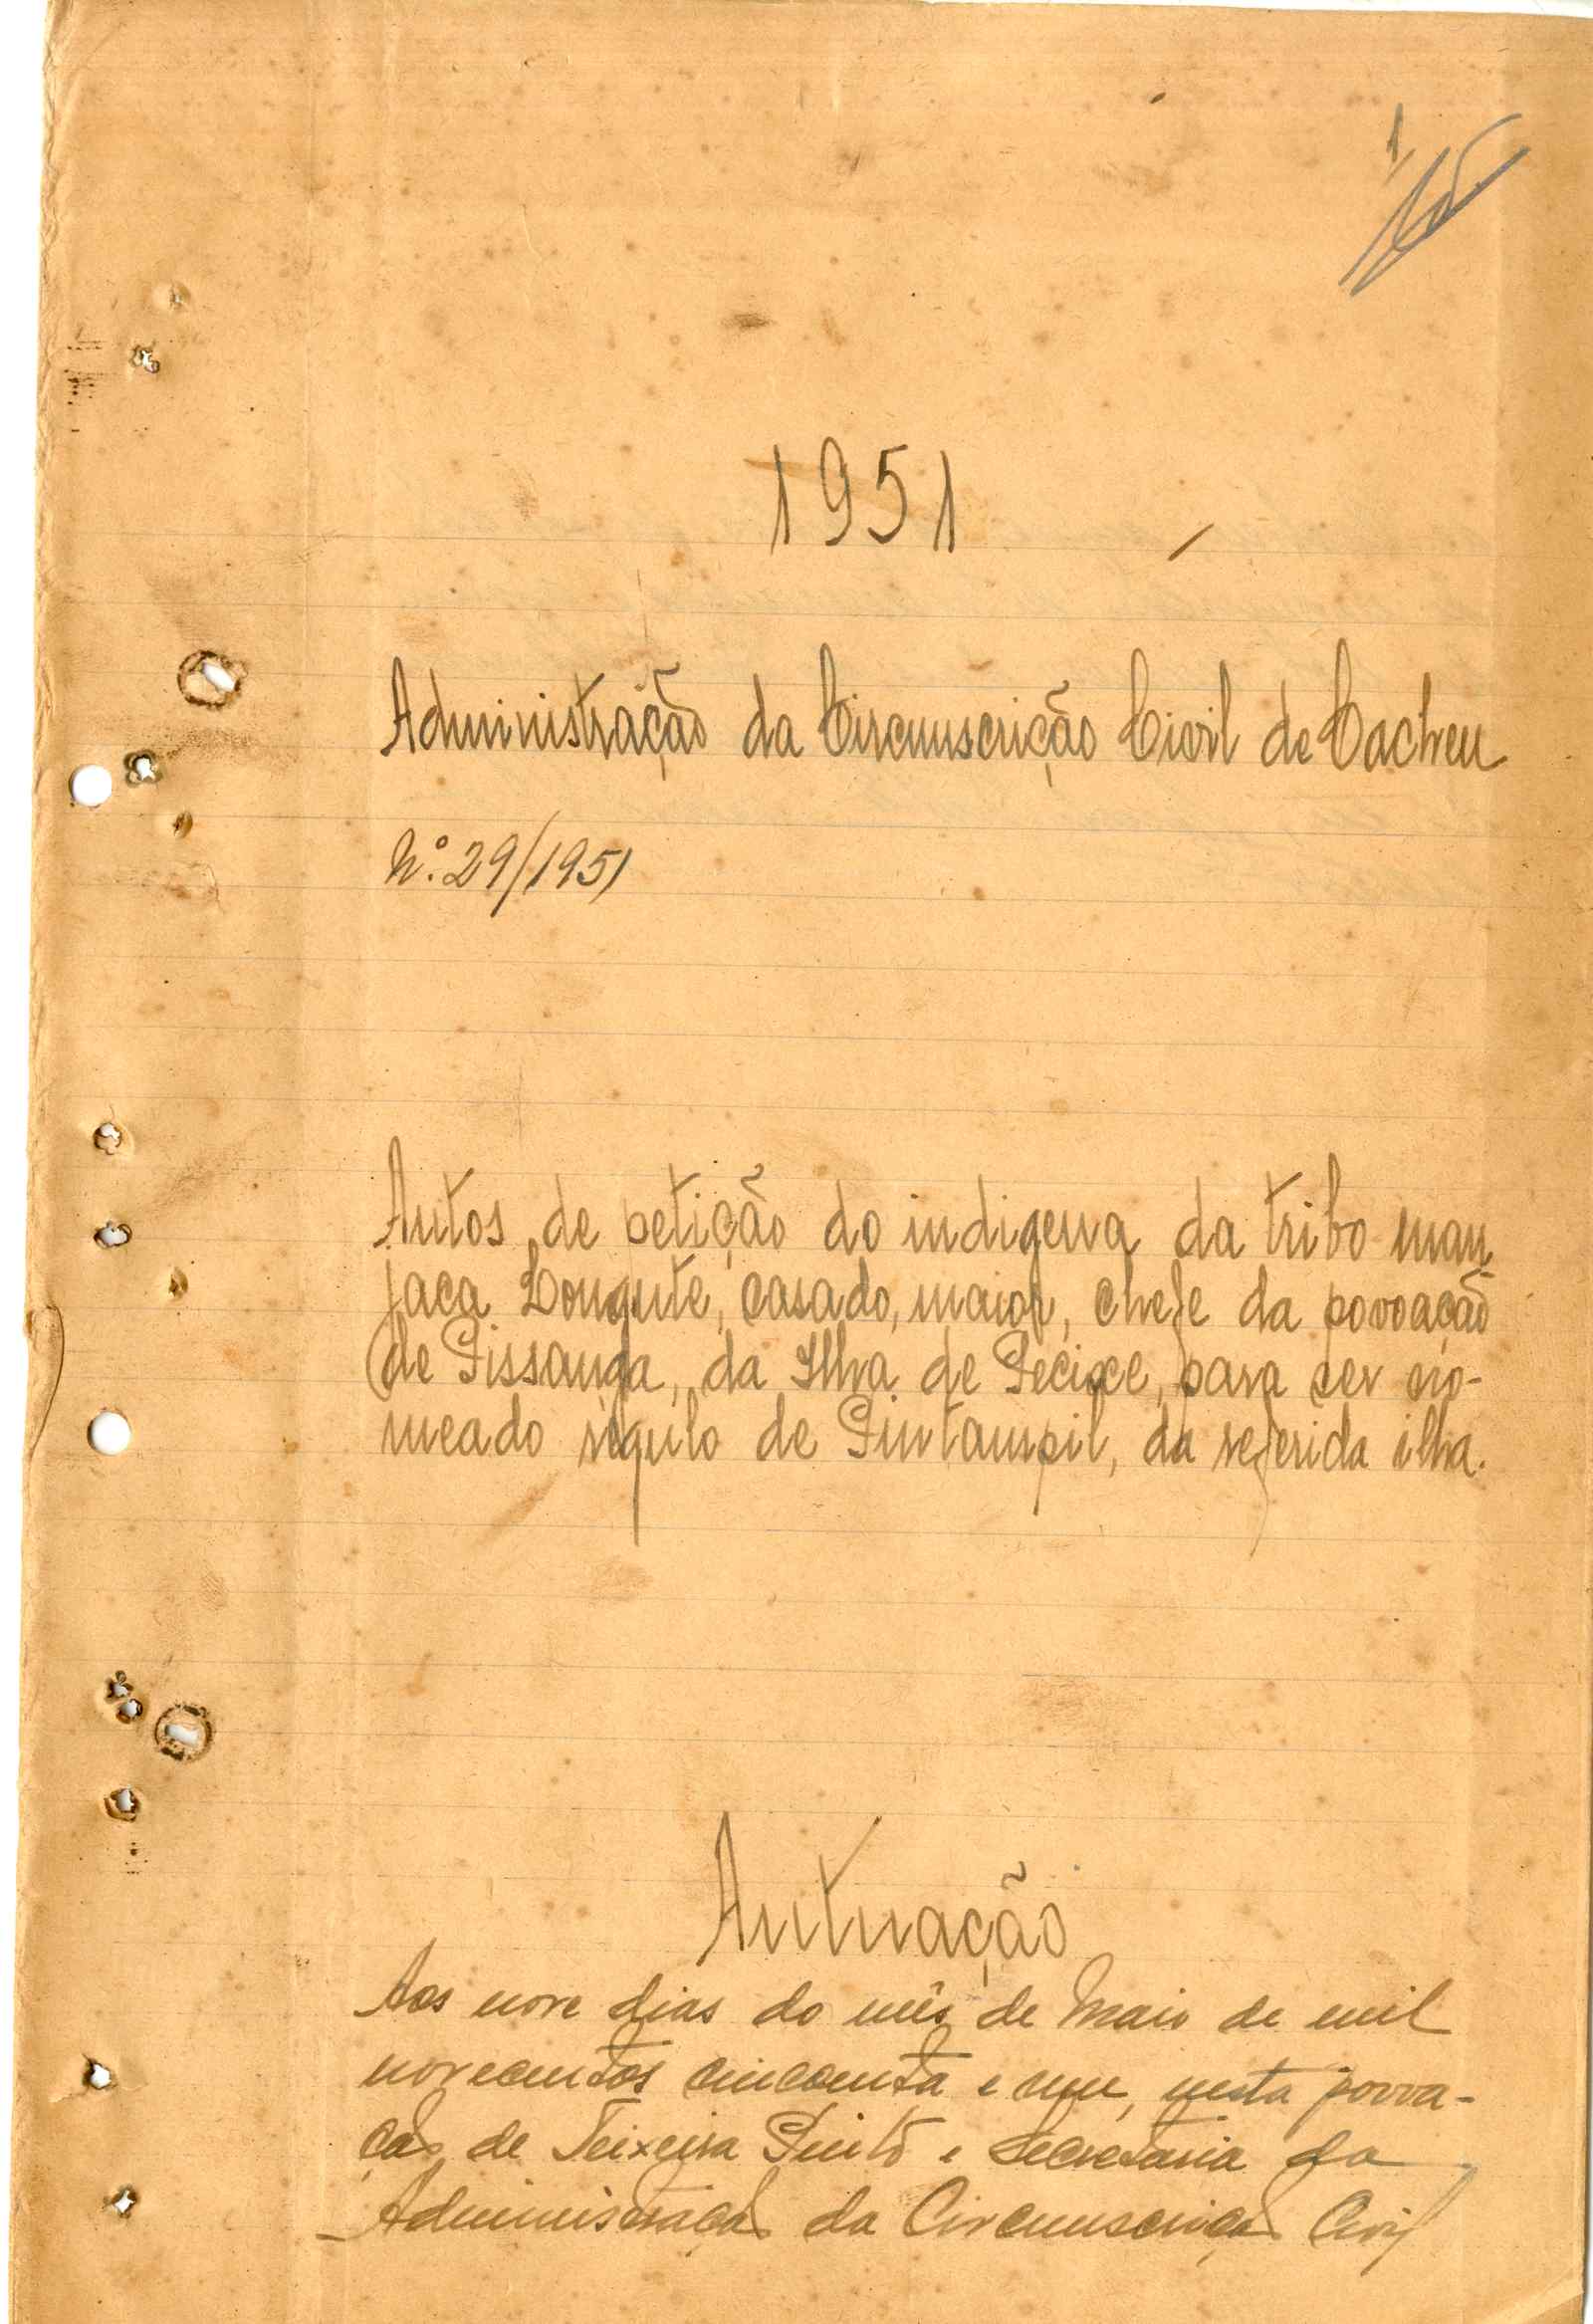 1
1951
Administração da Circunscrição Civil de Cacheu
N.º 29/1951
Autos de petição do indigena da tribo man
jaca Longute, casado, maior, chefe da povoação
de Pissanga, da Ilha de Pecixe, para ser no-
meado régulo de Pintampil, da referida ilha.
Autuação
Aos nove dias do mês de Maio de mil
novecentos cincoenta e um, nesta povoa-
ção de Teixeira Pinto e Secretaria da
Administração da Circunscrição Civil